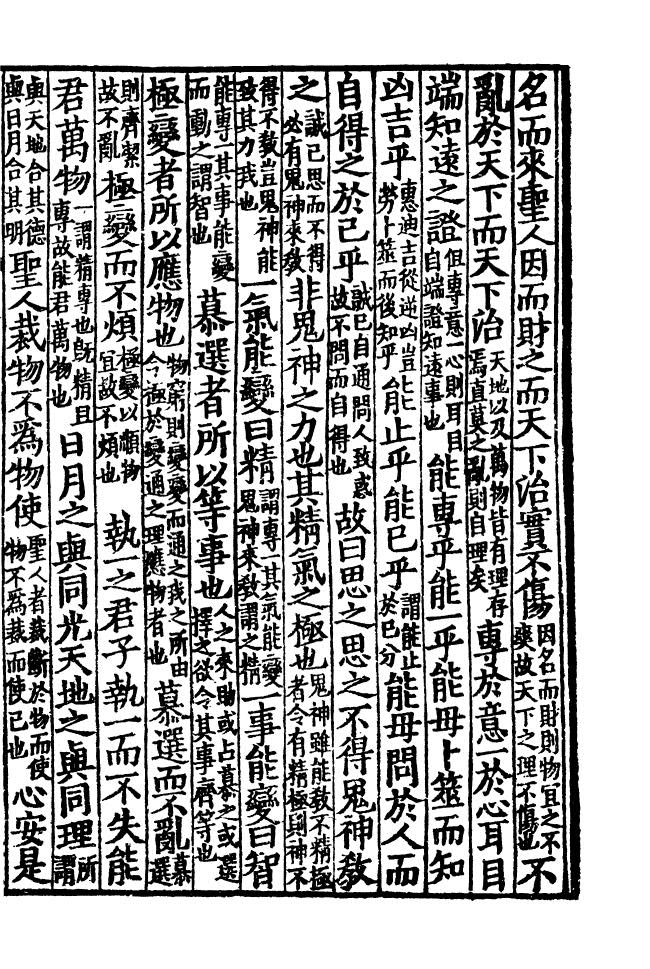 名而來聖人因而財之而天下治實不傷因名而財則物冝之不爽故天下之理不傷也不
亂於天下而天下治天地以及萬物皆有理存焉直莫之亂則自理矣專於意一於心耳目
端知遠之證但專意一心則耳目自端證知遠事也能專乎能一乎能毋卜筮而知
凶吉乎惠迪吉從逆凶豈能勞卜筮而後知乎能止乎能已乎謂能止於已分能毋問於人而
自得之於已乎誠已自通問人致惑故不問而自得也故曰思之思之不得鬼神教
之誠已思而不得必有鬼神來教非鬼神之力也其精氣之極也鬼神雖能教不精極者令有精極則神不
得不教豈鬼神能致其力我也一氣能變曰精謂專一其氣能變鬼神來教謂之精一事能變曰智
能專一其事能變而動之謂智也慕選者所以等事也人之來助或占慕之或選擇之欲令其事齊等也
極變者所以應物也物窮則變變而通之我之所由今極於變通之理應物者也慕選而不亂慕選
則齊潔故不亂極變而不煩極變以順物冝故不煩也執一之君子執一而不失能
君萬物一謂精專也旣精且專故能君萬物也日月之與同光天地之與同理所謂
與天地合其德與日月合其明聖人裁物不爲物使聖人者裁斷於物而使物不爲裁而使已也心安是